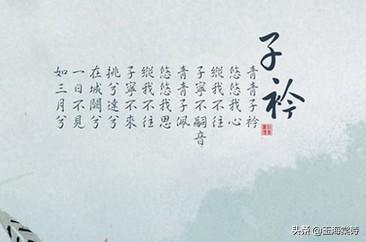 子衿
青青子衿
悠悠我心
縱我不往
子寧不嗣音
青青子佩
悠悠我思
縱我不往
子寧不來
挑兮達兮
在城闕兮
一日不見
如三月兮
头条@玉海棠诗